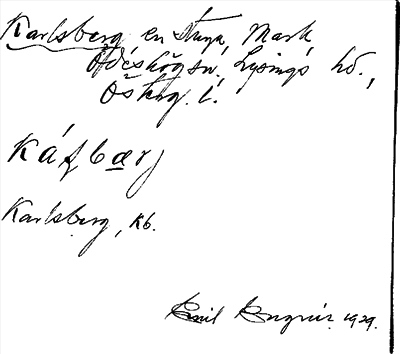 Karlsberg en stuga, Mark
Ödeshög sn. Lysings hd.,
Österg. l.
Káʃbærj
Karlsberg, kb.
Emil 1929.